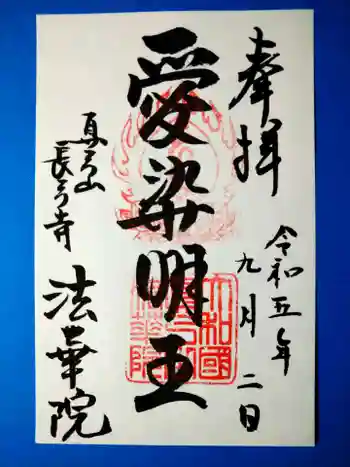 奉拝
令和五年
九月二日
愛染明王
真弓山
長弓寺
法華院